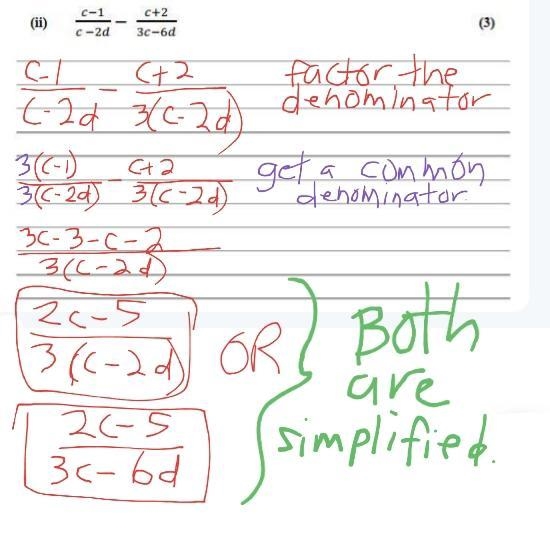 (ii) (c-1)/(c-2d) - (c+2)/(3c-6d) (3)
(c-1)/(c-2d) - (c+2)/(3(c-2d)) factor the
denominator
(3(c-1))/(3(c-2d)) - (c+2)/(3(c-2d)) get a common
denominator.
(3c-3-c-2)/(3(c-2d))
(2c-5)/(3(c-2d)) OR
(2c-5)/(3c-6d)
Both
are
simplified.